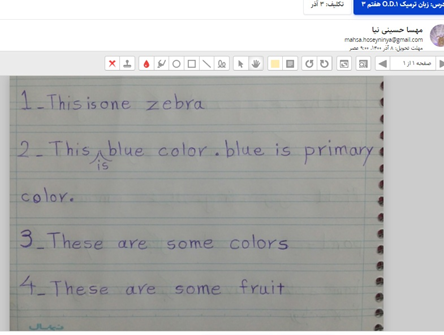 درس: زبان ترمیک O.D.1 هفتم ۳
تکلیف: ۳ آذر
مهسا حسینی نیا
mahsa.hoseyninya@gmail.com
صفحه ۱ از ۱
1_This is one zebra
2_This is blue color. blue is primary
color.
3_These are some colors
4_These are some fruit